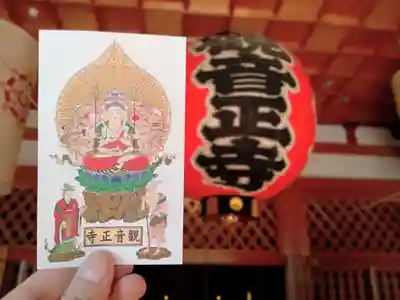 観音正寺
観音正寺